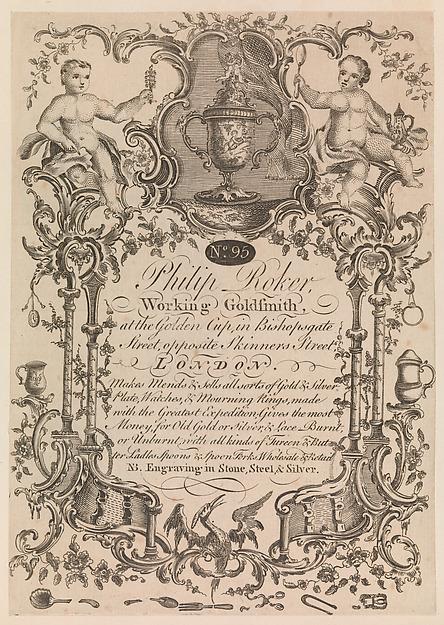 No. 95
Philip Roker,
Working Goldsmith,
at the Golden Cup, in Bishopsgate
Street, opposite Skinners Street,
LONDON.
Makes Mends & sells all sorts of Gold & Silver
Plate, Watches, & Mourning Rings, made
with the Greatest Expedition, Gives the most
Money, for Old Gold or Silver, & Lace Burnt,
or Unburnt, with all kinds of Tureen & But-
ter Ladles Spoons & Spoon Forks, Wholesale & Retail
NB. Engraving in Stone, Steel, & Silver.